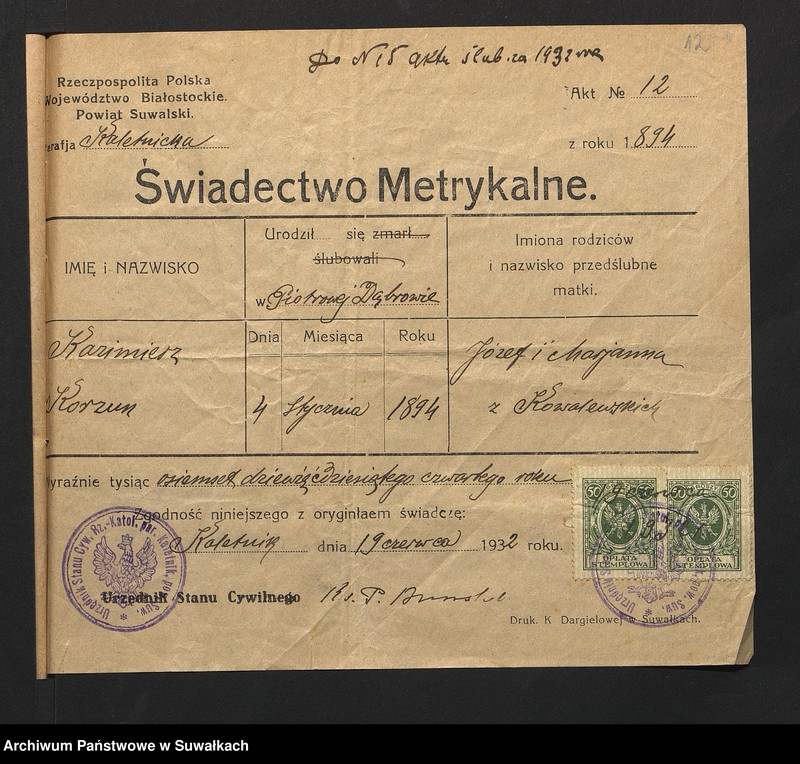 Do N 15 aktu ślub. za 1932 rok
12
Rzeczpospolita Polska
Województwo Białostockie.
Powiat Suwalski.
arafja Kaletnicka
Akt № 12
z roku 1894
Świadectwo Metrykalne.
IMIĘ i NAZWISKO
Urodził się zmarł
ślubowali
w Piotrowej Dąbrowie
Imiona rodziców
i nazwisko przedślubne
matki.
Dnia Miesiąca Roku
Kazimierz
Korzun
4 stycznia 1894
Józef i Marjanna
z Kowalewskich
yraźnie tysiąc osiemset dziewięćdziesiątego czwartego roku
Zgodność niniejszego z oryginłaem świadczę:
Kaletnik dnia 19 czerwca 1932 roku.
Urzędnik Stanu Cywilnego Ks. P.
Druk. K Dargielowej w Suwałkach.
Urzędnik Stanu Cyw. Rz.-Katol. par. Kaletnik, pow. Suw.
50 50 50 50
OPŁATA STEMPLOWA
OPŁATA STEMPLOWA
Archiwum Państwowe w Suwałkach